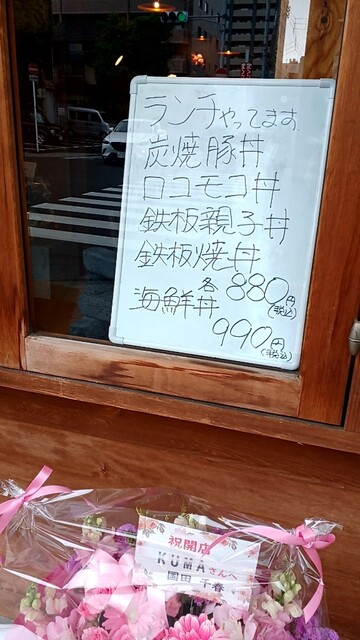 ランチやってます
炭焼豚丼
ロコモコ丼
鉄板親子丼
鉄板焼丼
各880円
(税込)
海鮮丼
990円
(税込)
祝開店
KUMAさんへ
園田 千春